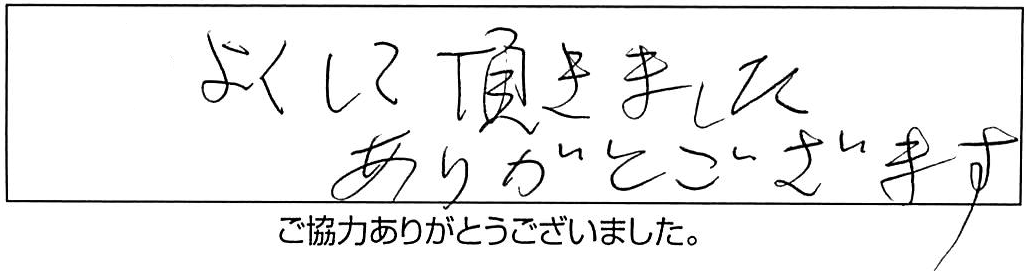 よくして頂きました
ありがとございます
ご協力ありがとうございました。